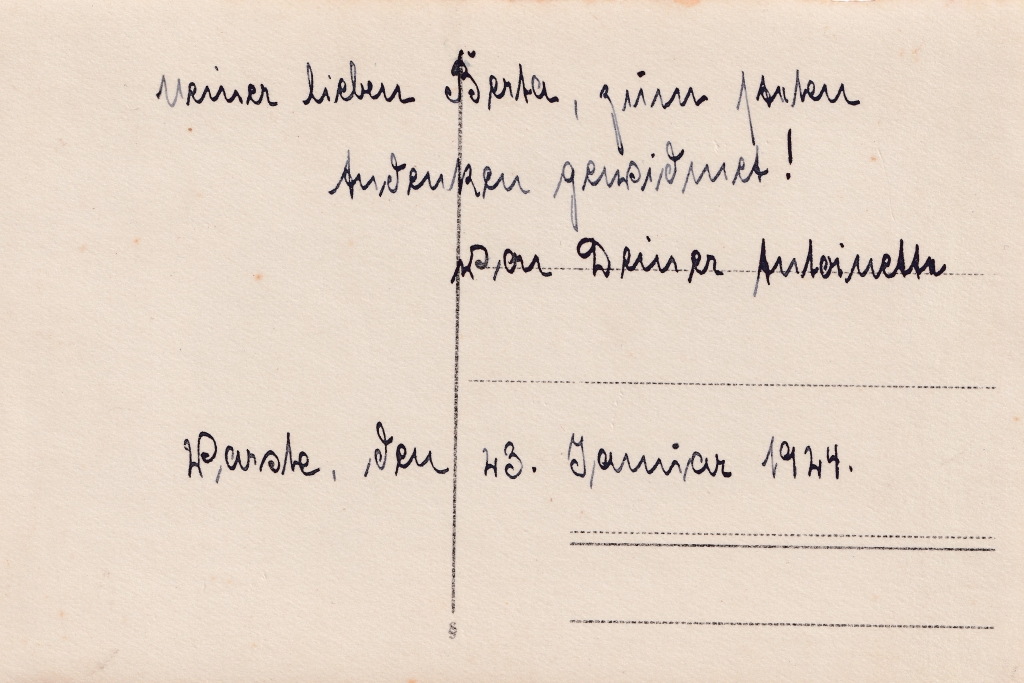 Meiner lieben Berta, zum steten
Andenken gewidmet!
Von Deiner Antoinette
den 23. Januar 1924.